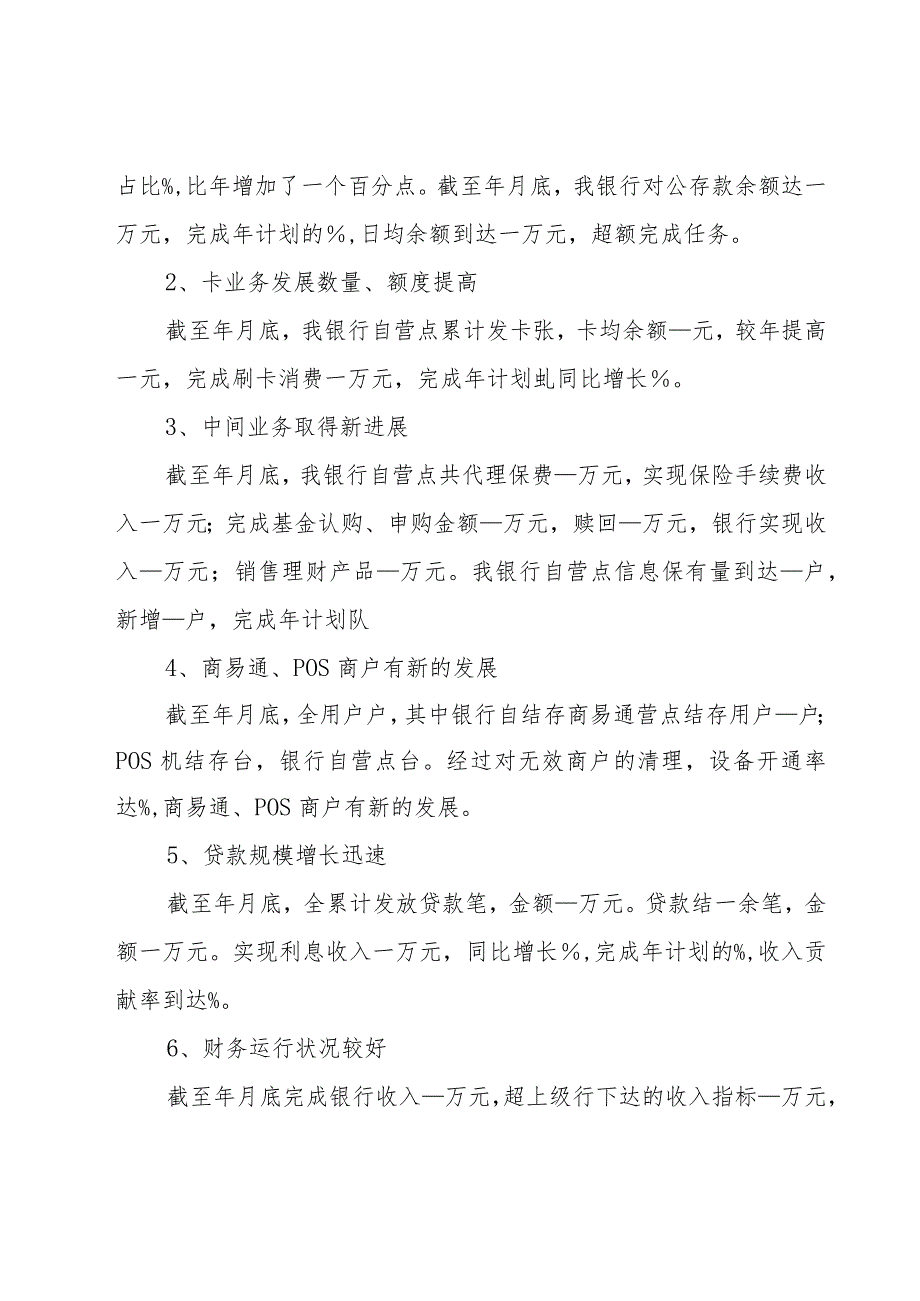 占比%,比年增加了一个百分点。截至年月底，我银行对公存款余额达一
万元，完成年计划的％,日均余额到达一万元，超额完成任务。
2、卡业务发展数量、额度提高
截至年月底，我银行自营点累计发卡张，卡均余额—元，较年提高
一元，完成刷卡消费一万元，完成年计划虬同比增长％。
3、中间业务取得新进展
截至年月底，我银行自营点共代理保费—万元，实现保险手续费收
入一万元；完成基金认购、申购金额—万元，赎回—万元，银行实现收
入—万元；销售理财产品—万元。我银行自营点信息保有量到达—户，
新增—户，完成年计划队
4、商易通、POS 商户有新的发展
截至年月底，全用户户，其中银行自结存商易通营点结存用户—户；
POS 机结存台，银行自营点台。经过对无效商户的清理，设备开通率
达%,商易通、POS 商户有新的发展。
5、贷款规模增长迅速
截至年月底，全累计发放贷款笔，金额—万元。贷款结一余笔，金
额一万元。实现利息收入一万元，同比增长％,完成年计划的%,收入贡
献率到达%。
6、财务运行状况较好
截至年月底完成银行收入—万元，超上级行下达的收入指标—万元，